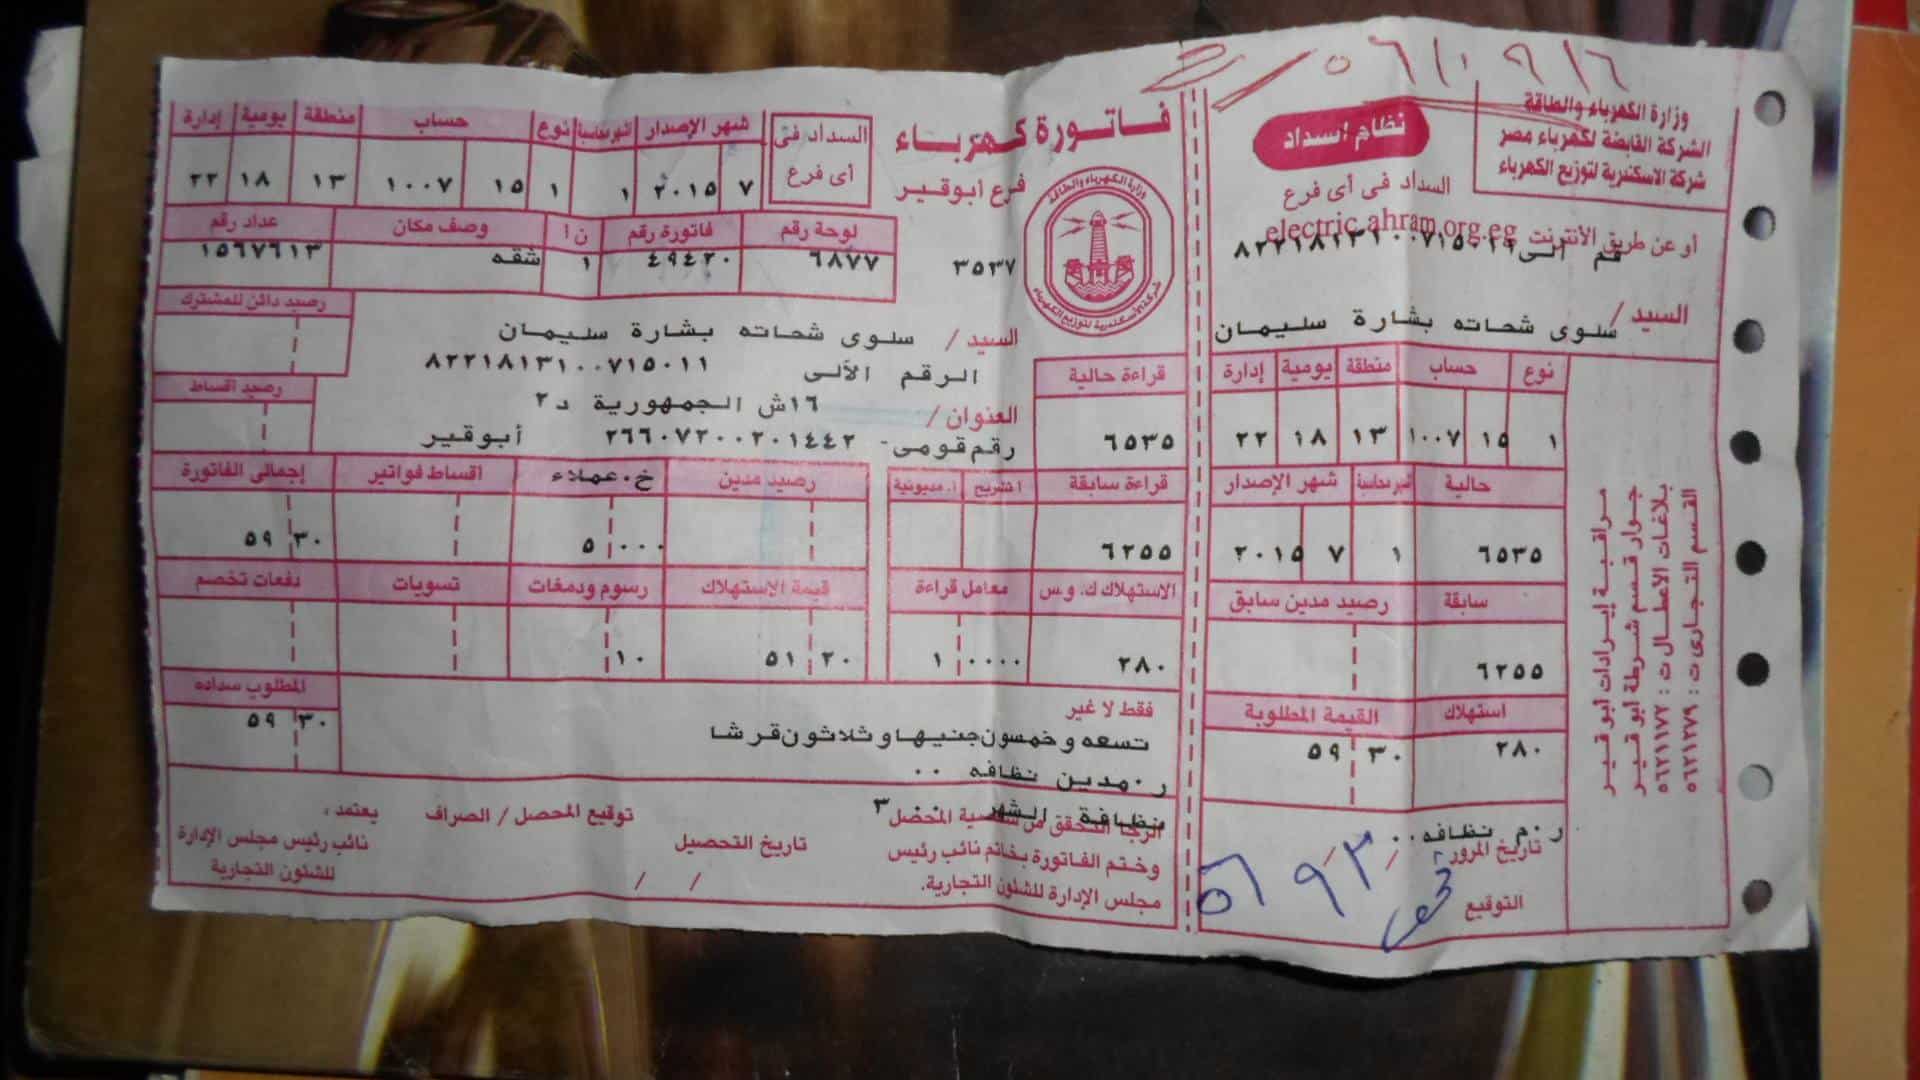 وزارة الكهرباء والطاقة
الشركة القابضة لكهرباء مصر
شركة الاسكندرية لتوزيع الكهرباء
نظام اسداد
السداد فى أى فرع
أو عن طريق الأنترنت electric.ahram.org.eg
السيد / سلوى شحاته بشارة سليمان
نوع حساب منطقة يومية إدارة
١ ١٥ ١٠٠٧ ١٣ ١٨ ٢٢
حالية شهر محاسبة شهر الإصدار
٦٥٣٥ ١ ٧ ٢٠١٥
سابقة رصيد مدين سابق
٦٢٥٥
استهلاك القيمة المطلوبة
٢٨٠ ٥٩ ٣٠
ر.م نظافه ٠٠
تاريخ المرور
التوقيع
مراقبة إيرادات أبو قير
جوار قسم شرطة أبو قير
بلاغات الأعطال ت : ٥٦٢١١٧٢
القسم التجارى ت : ٥٦٢١٢٧٩
فاتورة كهرباء
فرع ابوقير
وزارة الكهرباء والطاقة
شركة الاسكندرية لتوزيع الكهرباء
٣٥٣٧
السداد فى
أى فرع
شهر الإصدار شهر محاسبة نوع حساب منطقة يومية إدارة
٧ ٢٠١٥ ١ ١ ١٥ ١٠٠٧ ١٣ ١٨ ٢٢
لوحة رقم فاتورة رقم ن أ وصف مكان عداد رقم
٦٨٧٧ ٤٩٤٢٠ ١ شقه ١٥٦٧٦١٣
رصيد دائن للمشترك
السيد / سلوى شحاته بشارة سليمان
الرقم الألى ٨٢٢١٨١٣١٠٠٧١٥٠١١
العنوان / ١٦ش الجمهورية د٢
رقم قومى- ٢٦٦٠٧٢٠٠٢٠١٤٤٢ أبوقير
رصيد اقساط
قراءة حالية
٦٥٣٥
قراءة سابقة أ.مديونية رصيد مدين خ.عملاء اقساط فواتير إجمالى الفاتورة
٦٢٥٥ ٥ ٠٠٠ ٥٩ ٣٠
الاستهلاك ك.و.س معامل قراءة قيمة الاستهلاك رسوم ودمغات تسويات دفعات تخصم
٢٨٠ ١ ٠٠٠٠ ٥١ ٢٠ ١٠
المطلوب سداده
٥٩ ٣٠
فقط لا غير
تسعه وخمسون جنيها وثلاثون قرشا
ر.مدين نظافه ٠٠
نظافة الشهر ٣
الرجا التحقق من شخصية المحصل
وختم الفاتورة بخاتم نائب رئيس
مجلس الإدارة للشئون التجارية.
توقيع المحصل / الصراف
تاريخ التحصيل
/ /
يعتمد ،
نائب رئيس مجلس الإدارة
للشئون التجارية